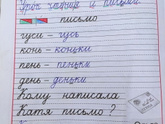 Урок чтения и письма.
письмо
гуси – гусь
конь – коньки
пень – пеньки
день – деньки
Кому написала
Катя письмо?